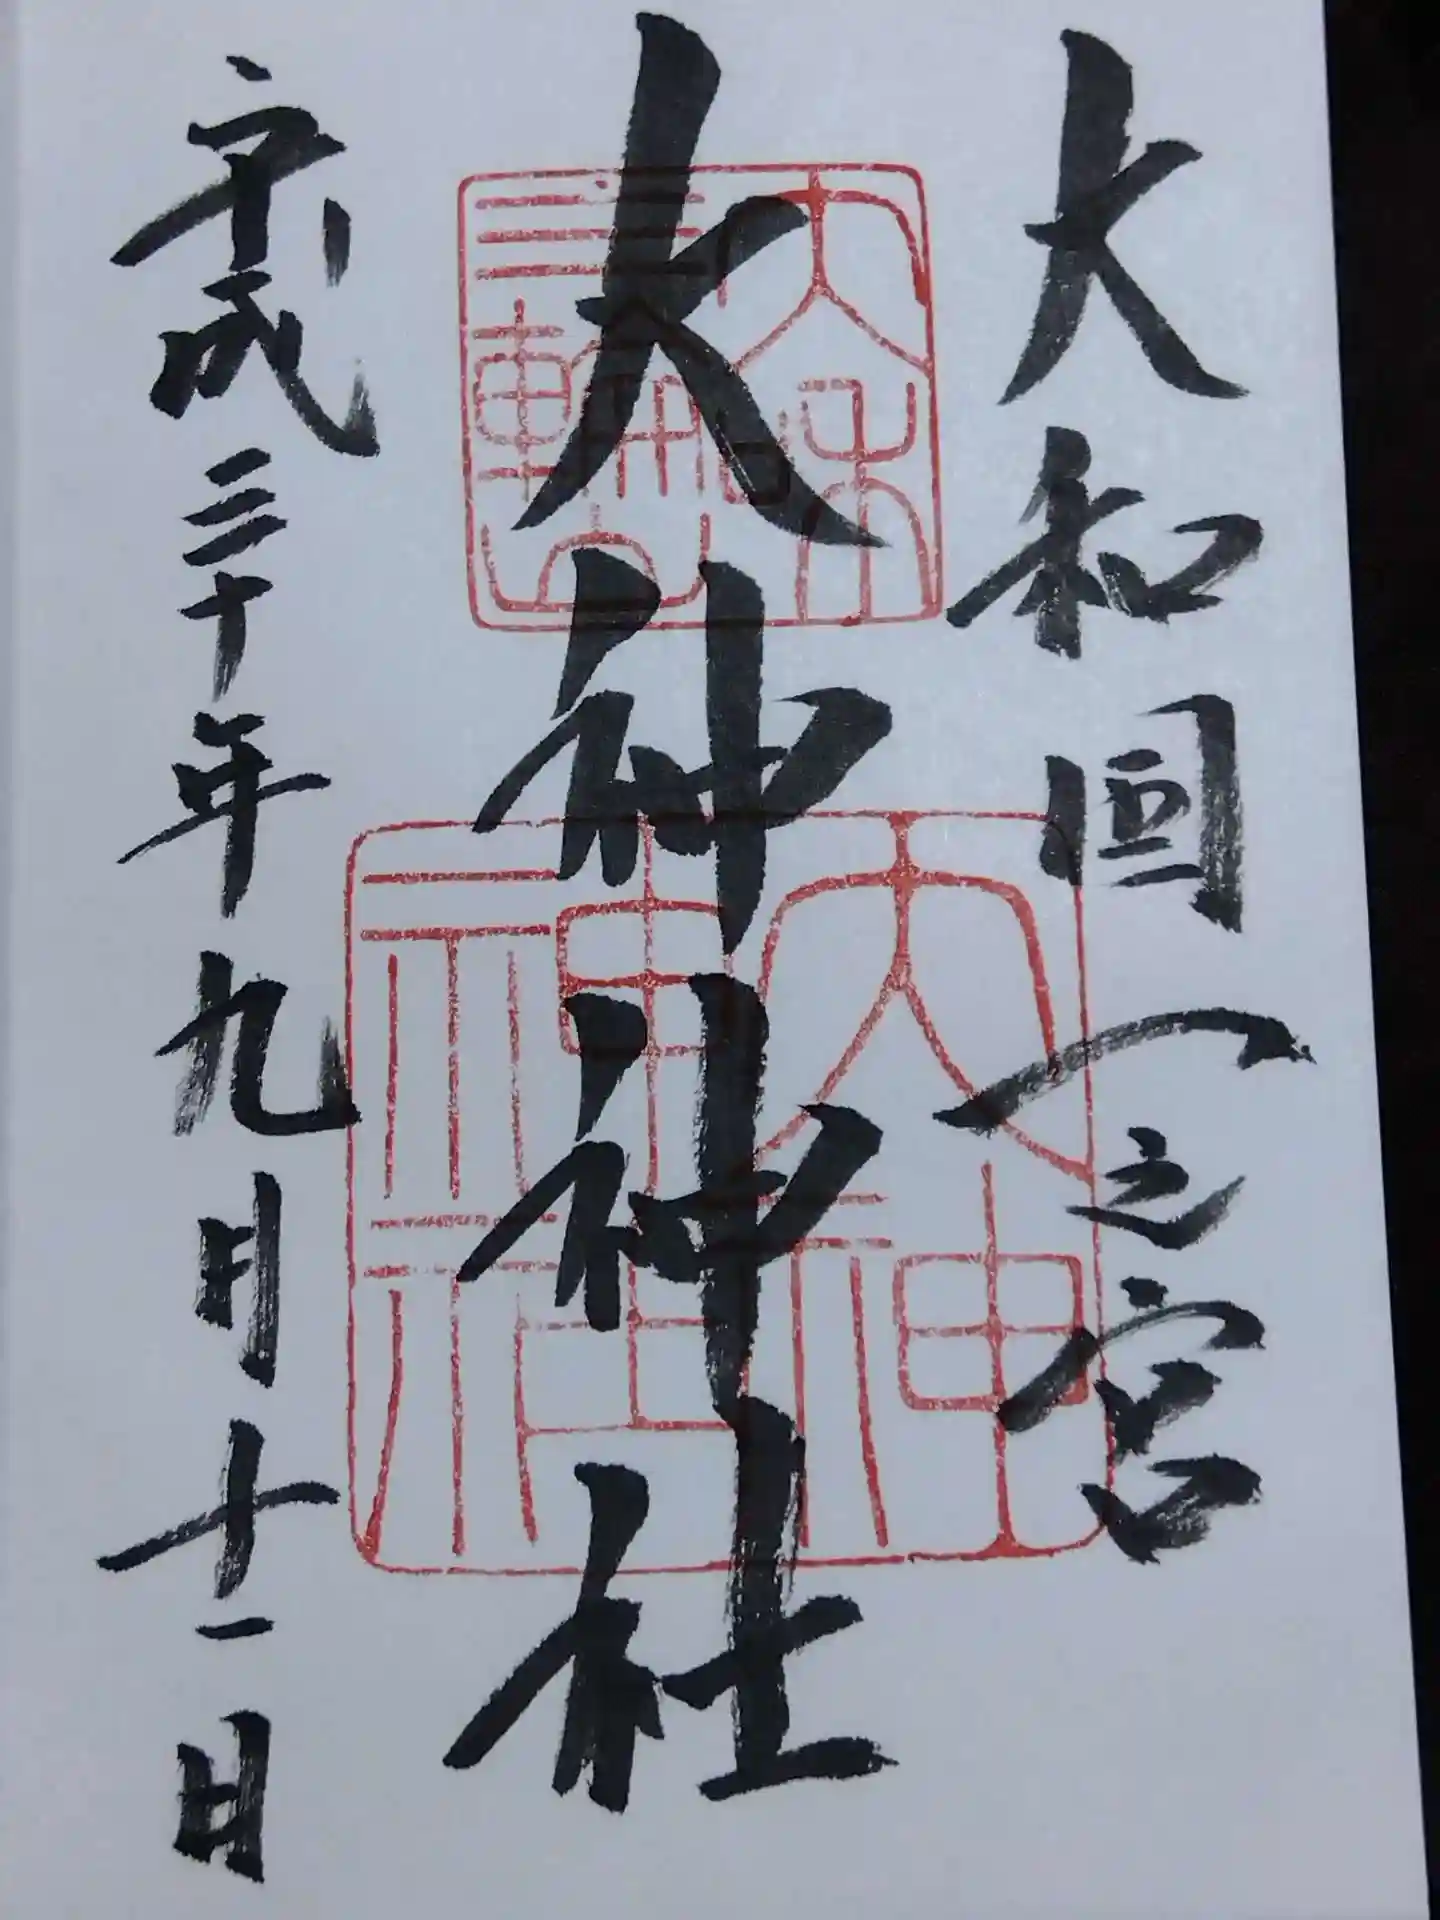 大和国一之宮
大神神社
平成三十年九月十一日
大和
三輪山
大神
神社